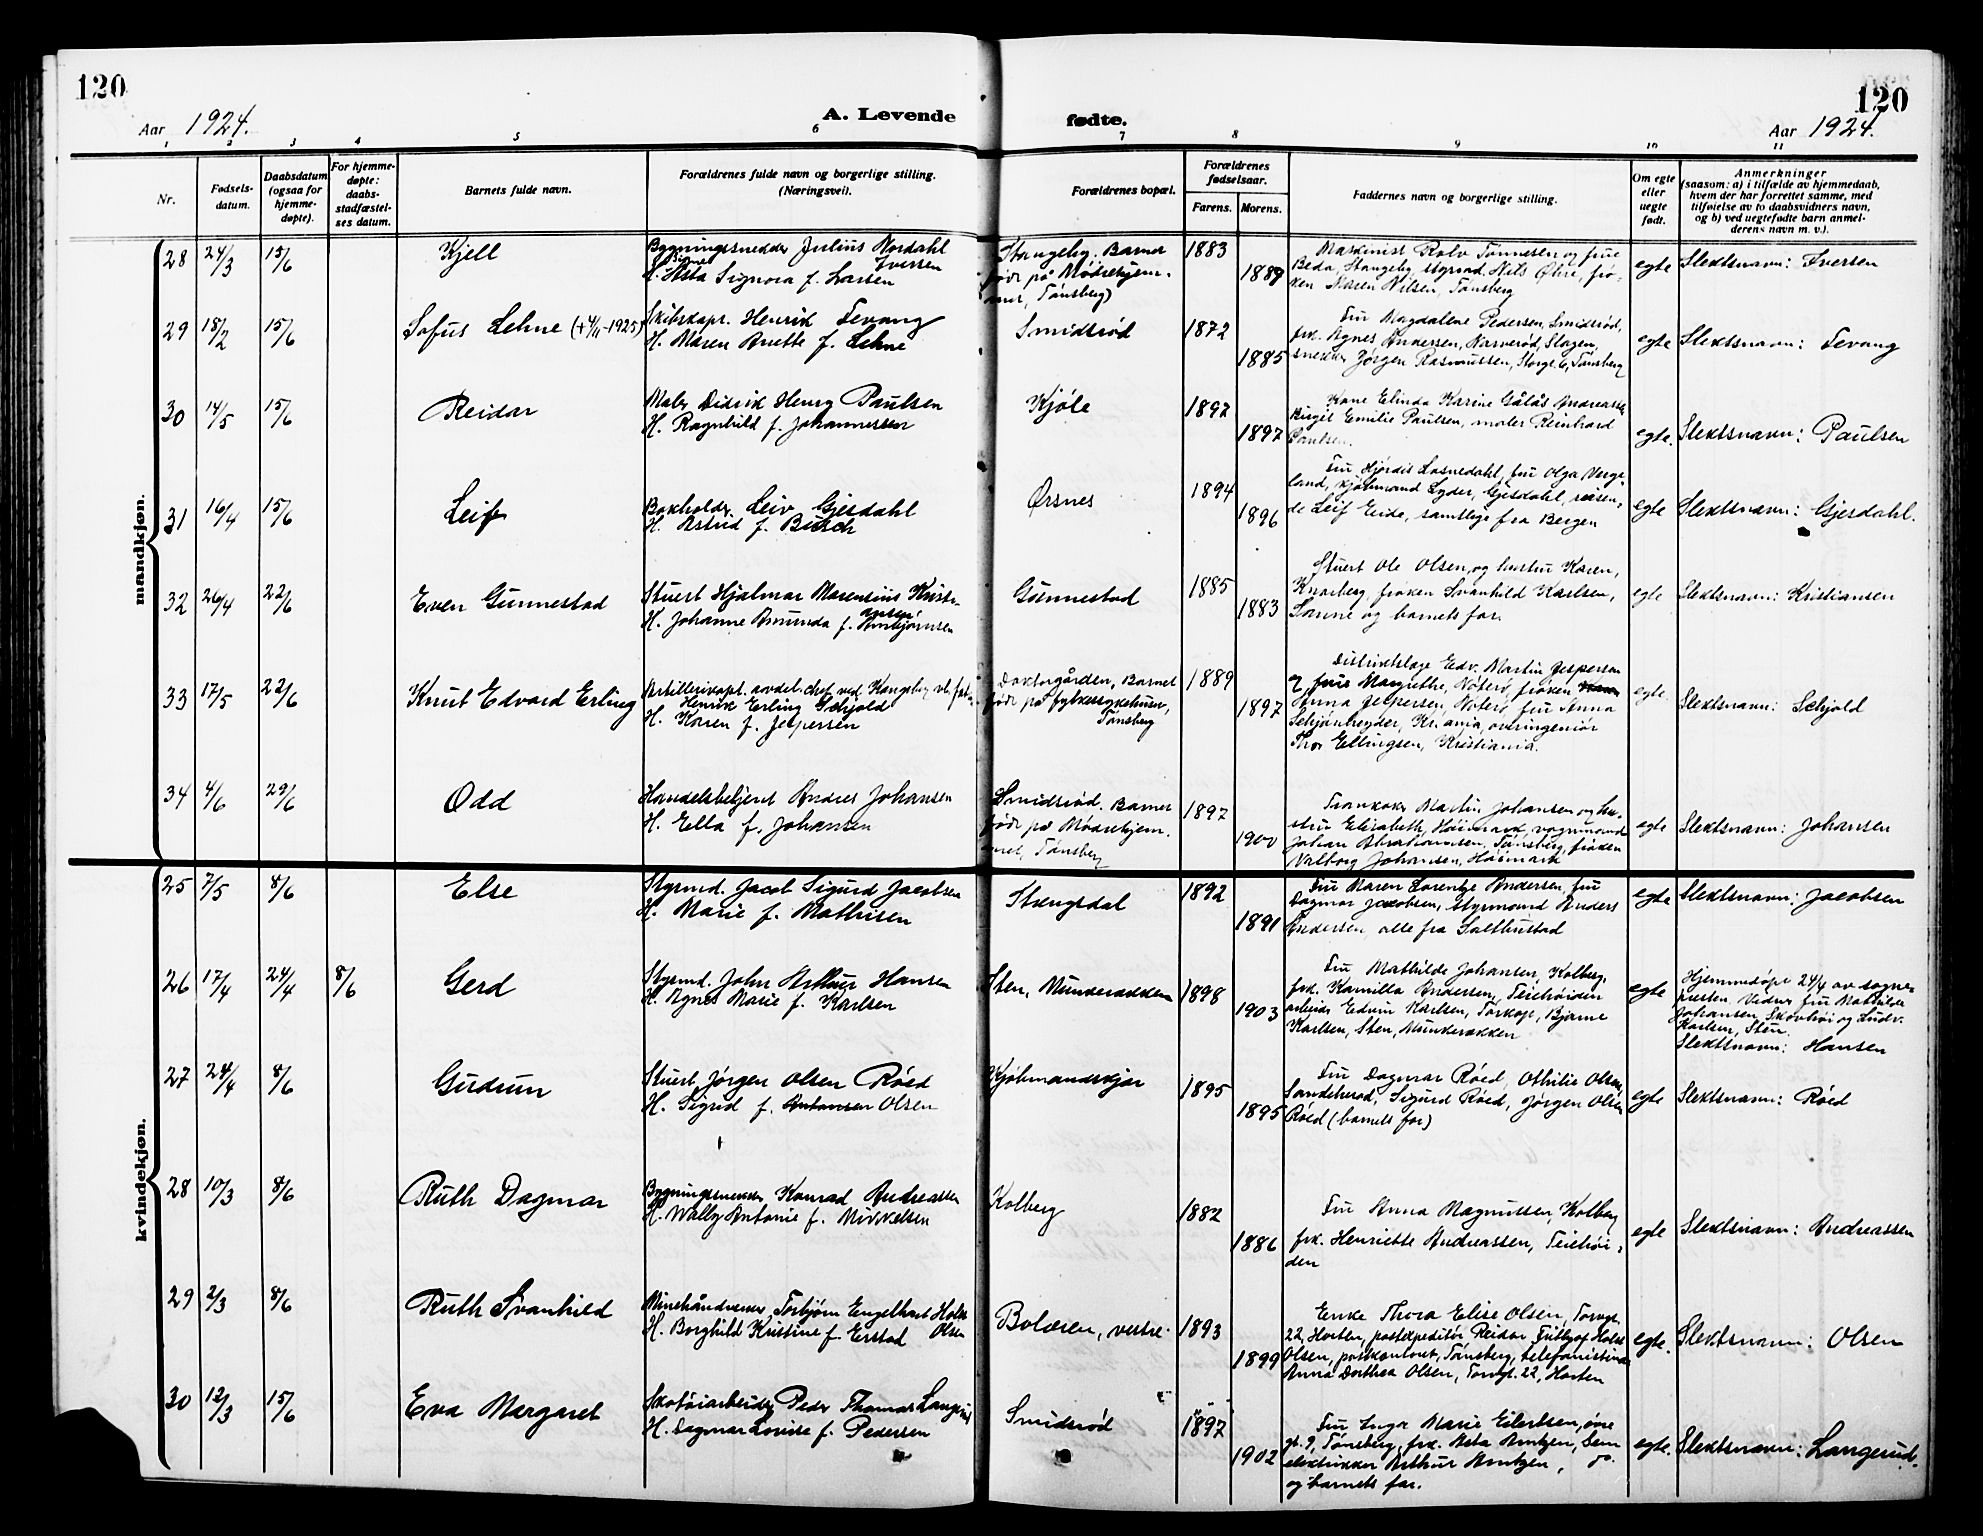 120
120
Aar 1924.
A. Levende
fødte.
Aar 1924.
1 2 3 4 5 6 7 8 9 10 11
Nr.
Fødsels-
datum.
Daabsdatum
(ogsaa for
hjemme-
døpte).
For hjemme-
døpte:
daabs-
stadfæstel-
ses datum.
Barnets fulde navn.
Forældrenes fulde navn og borgerlige stilling.
(Næringsvei).
Forældrenes bopæl.
Forældrenes
fødselsaar.
Farens. Morens.
Faddernes navn og borgerlige stilling.
Om egte
eller
uegte
født.
Anmerkninger
(saasom: a) i tilfælde av hjemmedaab,
hvem der har forrettet samme, med
tilføielse av to daabsvidners navn,
og b) ved uegtefødte barn anmel-
derens navn m. v.).
mandkjøn.
28 24/3 15/6 Kjell
Bygningssnedker Julius Nordahl
Iversen
H. Signora f. Larsen
Stangeby. Barnet
født på Mødrehjem-
met, Tønsberg)
1883
1889
Maskinist Rolv Tønnesen og frue
Beda, Stangeby, styrmd. Nils Øhre, frø-
ken Maren Nilsen, Tønsberg
egte
Slektsnavn: Iversen
29 18/2 15/6 Sofus Lehne (+4/11-1925)
Skibskapt. Henrik Tevang
H. Maren Anette f. Lehne
Smidsrød
1872
1885
Fru Magdalene Pedersen, Smidsrød,
frk. Agnes Andersen, Slagen,
snekker Jørgen Rasmussen, Storgt. 6, Tønsberg
egte
Slektsnavn: Tevang
30 14/5 15/6 Reidar
Maler Didrik Henry Paulsen
H. Ragnhild f. Johannessen
Kjøle
1892
1897
Kone Elinda Karine Gålås Andreassen
Birgit Emilie Paulsen, maler Reinhard
Paulsen.
egte.
Slektsnavn: Paulsen
31 16/4 15/6 Leif
Bokholder Leiv Gjesdahl
H. Astrid f. Busch
Ørsnes
1894
1896
Fru Hjørdis Losnedahl, fru Olga Verge-
land, kjøbmand Lyder Gjesdahl, reisen-
de Leif Eide, samtlige fra Bergen
egte
Slektsnavn: Gjesdahl.
32 26/4 22/6 Even Gunnestad
Stuert Hjalmar Marensius Kristi-
ansen
H. Johanne Amunda f. Ambjørnsen
Gunnestad
1885
1883
Stuert Ole Olsen og hustru Karen,
Knarberg, frøken Svanhild Karlsen,
Sanne og barnets far.
egte
Slektsnavn: Kristiansen
33 17/5 22/6 Knut Edvard Erling
Artillerikapt. avdel. chef ved Kongsberg
Henrik Erling Schjold
H. Karen f. Jespersen
Doktorgården, Barnet
født på fylkessykehuset,
Tønsberg
1889
1897
Distriktslæge Edv. Martin Jespersen
og frue Margrethe, Nøterø, frøken
Anna Jespersen, Nøterø, fru Anna
Schjønheyder, Kr.ania, overingeniør
Thor Ellingsen, Kristiania.
egte
Slektsnavn: Schjold
34 4/6 29/6 Odd
Handelsbetjent Andres Johansen
H. Ella f. Johansen
Smidsrød. Barnet
født på Mødrehjem-
met, Tønsberg
1897
1900
Trankoker Martin Johansen og hu-
stru Elisabeth, Høimark, vognmand
Johan Abrahamsen, Tønsberg, frøken
Valborg Johansen, Høimark
egte
Slektsnavn: Johansen
kvindekjøn.
25 7/5 8/6 Else
Styrmd. Jacob Sigurd Jacobsen
H. Marie f. Mathisen
Stengsdal
1892
1891
Fru Maren Lorentze Andersen, fru
Dagmar Jacobsen, styrmand Anders
Andersen, alle fra Salthustad
egte
Slektsnavn: Jacobsen
26 17/4 24/4 8/6 Gerd
Styrmd. John Arthur Hansen
H. Agnes Marie f. Karlsen
Sten, Munkerekken
1898
1903
Fru Mathilde Johansen, Kolberg,
frk. Kamilla Andersen, Teiehøiden
arbeider Edvin Karlsen, Torkop, Bjarne
Karlsen, Sten, Munkerekken
egte
Hjemmedøpt 24/4 av sogne-
presten. Vidner fru Mathilde
Johansen, Skovhøi og Ludv.
Karlsen, Sten.
Slektsnavn: Hansen
27 24/4 8/6 Gudrun
Stuert Jørgen Olsen Røed
H. Sigrid f. Antonsen Olsen
Kjøbmandskjær
1895
1895
Fru Dagmar Røed, Othilie Olsen,
Sandeherad, Sigurd Røed, Jørgen Olsen
Røed (barnets far)
egte
Slektsnavn: Røed
28 10/3 8/6 Ruth Dagmar
Bygningssnekker Konrad Andreassen
H. Wally Antonie f. Mikkelsen
Kolberg
1882
1886
Fru Anna Magnussen, Kolberg
frk. Henriette Andreassen, Teiehøi-
den
egte
Slektsnavn: Andreassen
29 2/3 8/6 Ruth Svanhild
Minehåndverker Torbjørn Engelhart Holst
Olsen
H. Borghild Kristine f. Erstad
Bolæren, vestre.
1893
1899
Enke Thora Elise Olsen, Torvgt.
22, Horten, postexpeditør Reidar Fritjof Holst
Olsen, postkontoret, Tønsberg, telefonistinne
Anna Dorthea Olsen, Torvgt. 22, Horten
egte.
Slektsnavn: Olsen
30 12/3 15/6 Eva Margaret
Skotøiarbeider Peder Thomas Langerud
H. Dagmar Lovise f. Pedersen
Smidsrød
1897
1902
Fru Inga Marie Eilertsen, øvre
gt. 9, Tønsberg, frk. Asta Arntzen, Sem
elektriker Arthur Arntzen, do.
og barnets far.
egte.
Slektsnavn: Langerud.